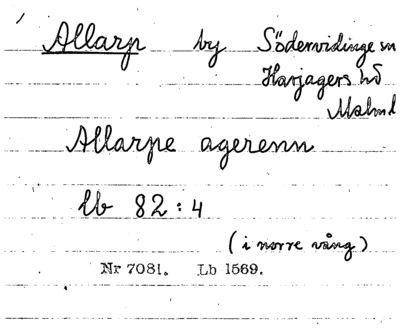 Allarp by Södervidinge sn
Harjagers hd
Malm l
Allarpe agerenn
lb 82:4
(i norre vång)
Nr 7081. Lb 1569.